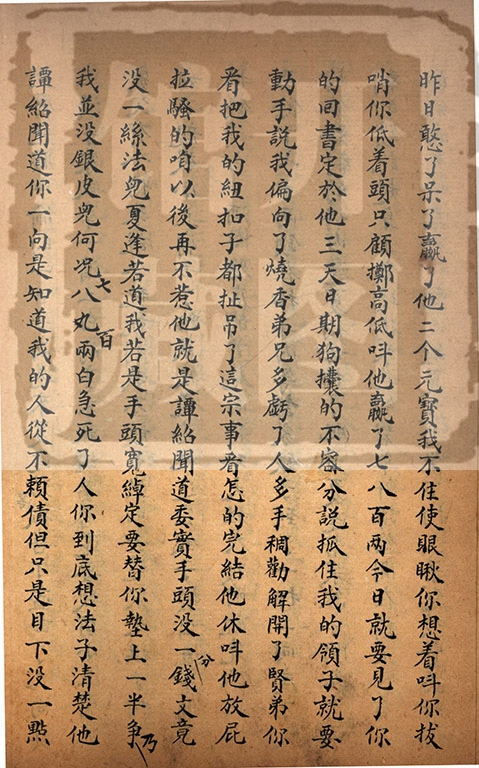 昨日憨了呆了贏了他二个元寶我不住使眼瞅你想着呌你拔
哨你低着頭只顧擲高低呌他贏了七八百两今日就要見了你
的回書定於他三天日期狗攮的不容分説抓住我的領子就要
動手説我偏向了燒香弟兄多虧了人多手稠勸解開了賢弟你
看把我的紐扣子都扯吊了這宗事看怎的完結他休呌他放屁
拉騷的咱以後再不惹他就是譚紹聞道委實手頭没一分錢文竟
没一絲法兒夏逢若道我若是手頭寬綽定要替你墊上一半争乃
我並没銀皮兒何况七八百两白急死了人你到底想法子清楚他
譚紹聞道你一向是知道我的人從不賴債但只是目下没一點